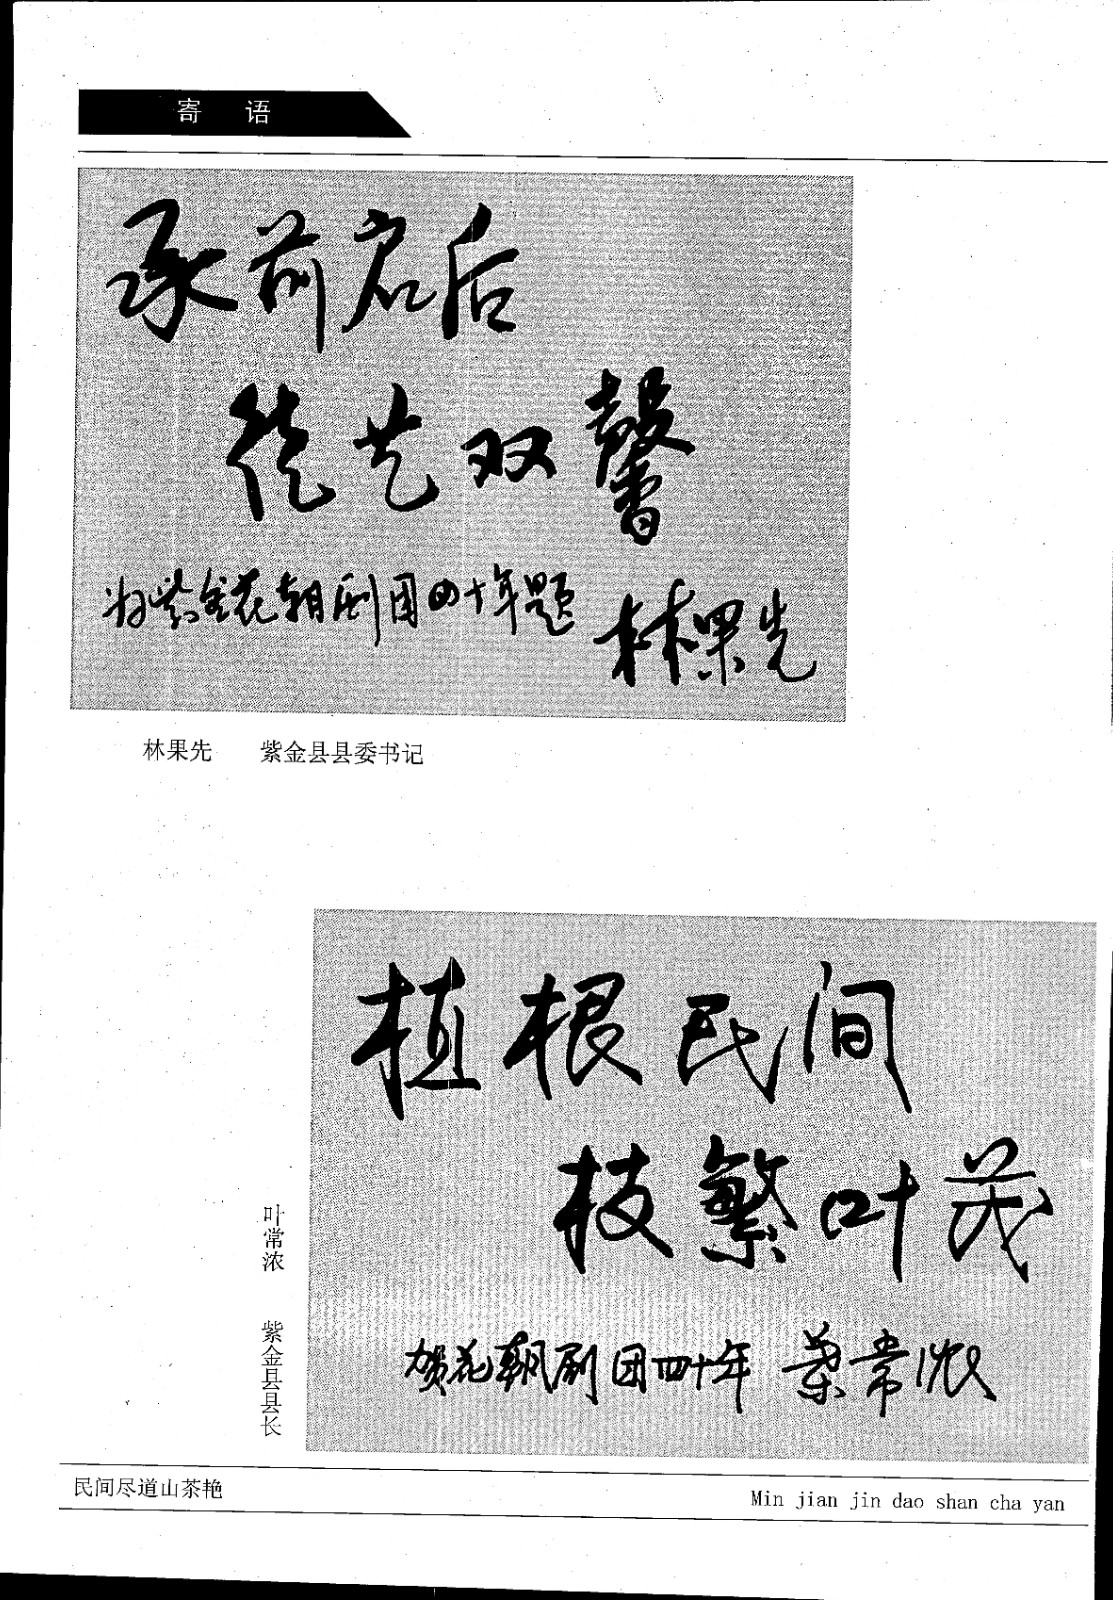 寄 语
承前启后
德艺双馨
为紫金花朝剧团四十年题
林果先
林果先 紫金县县委书记
植根民间
枝繁叶茂
贺花朝剧团四十年 葉常浓
叶常浓 紫金县县长
民间尽道山茶艳
Min jian jin dao shan cha yan